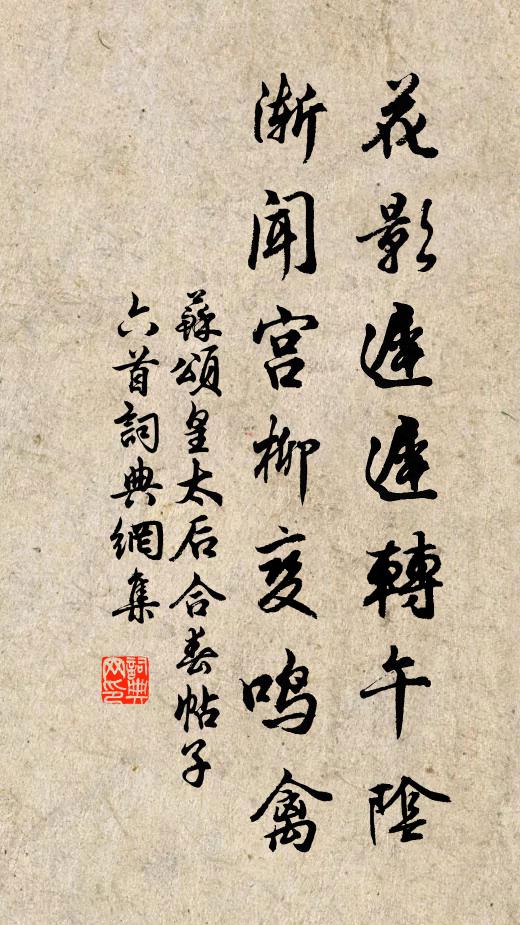 花影遲遲轉午陰
漸聞宫柳变鸣禽
蘇頌皇太后合春帖子
六首詞典網集
詞典
网印